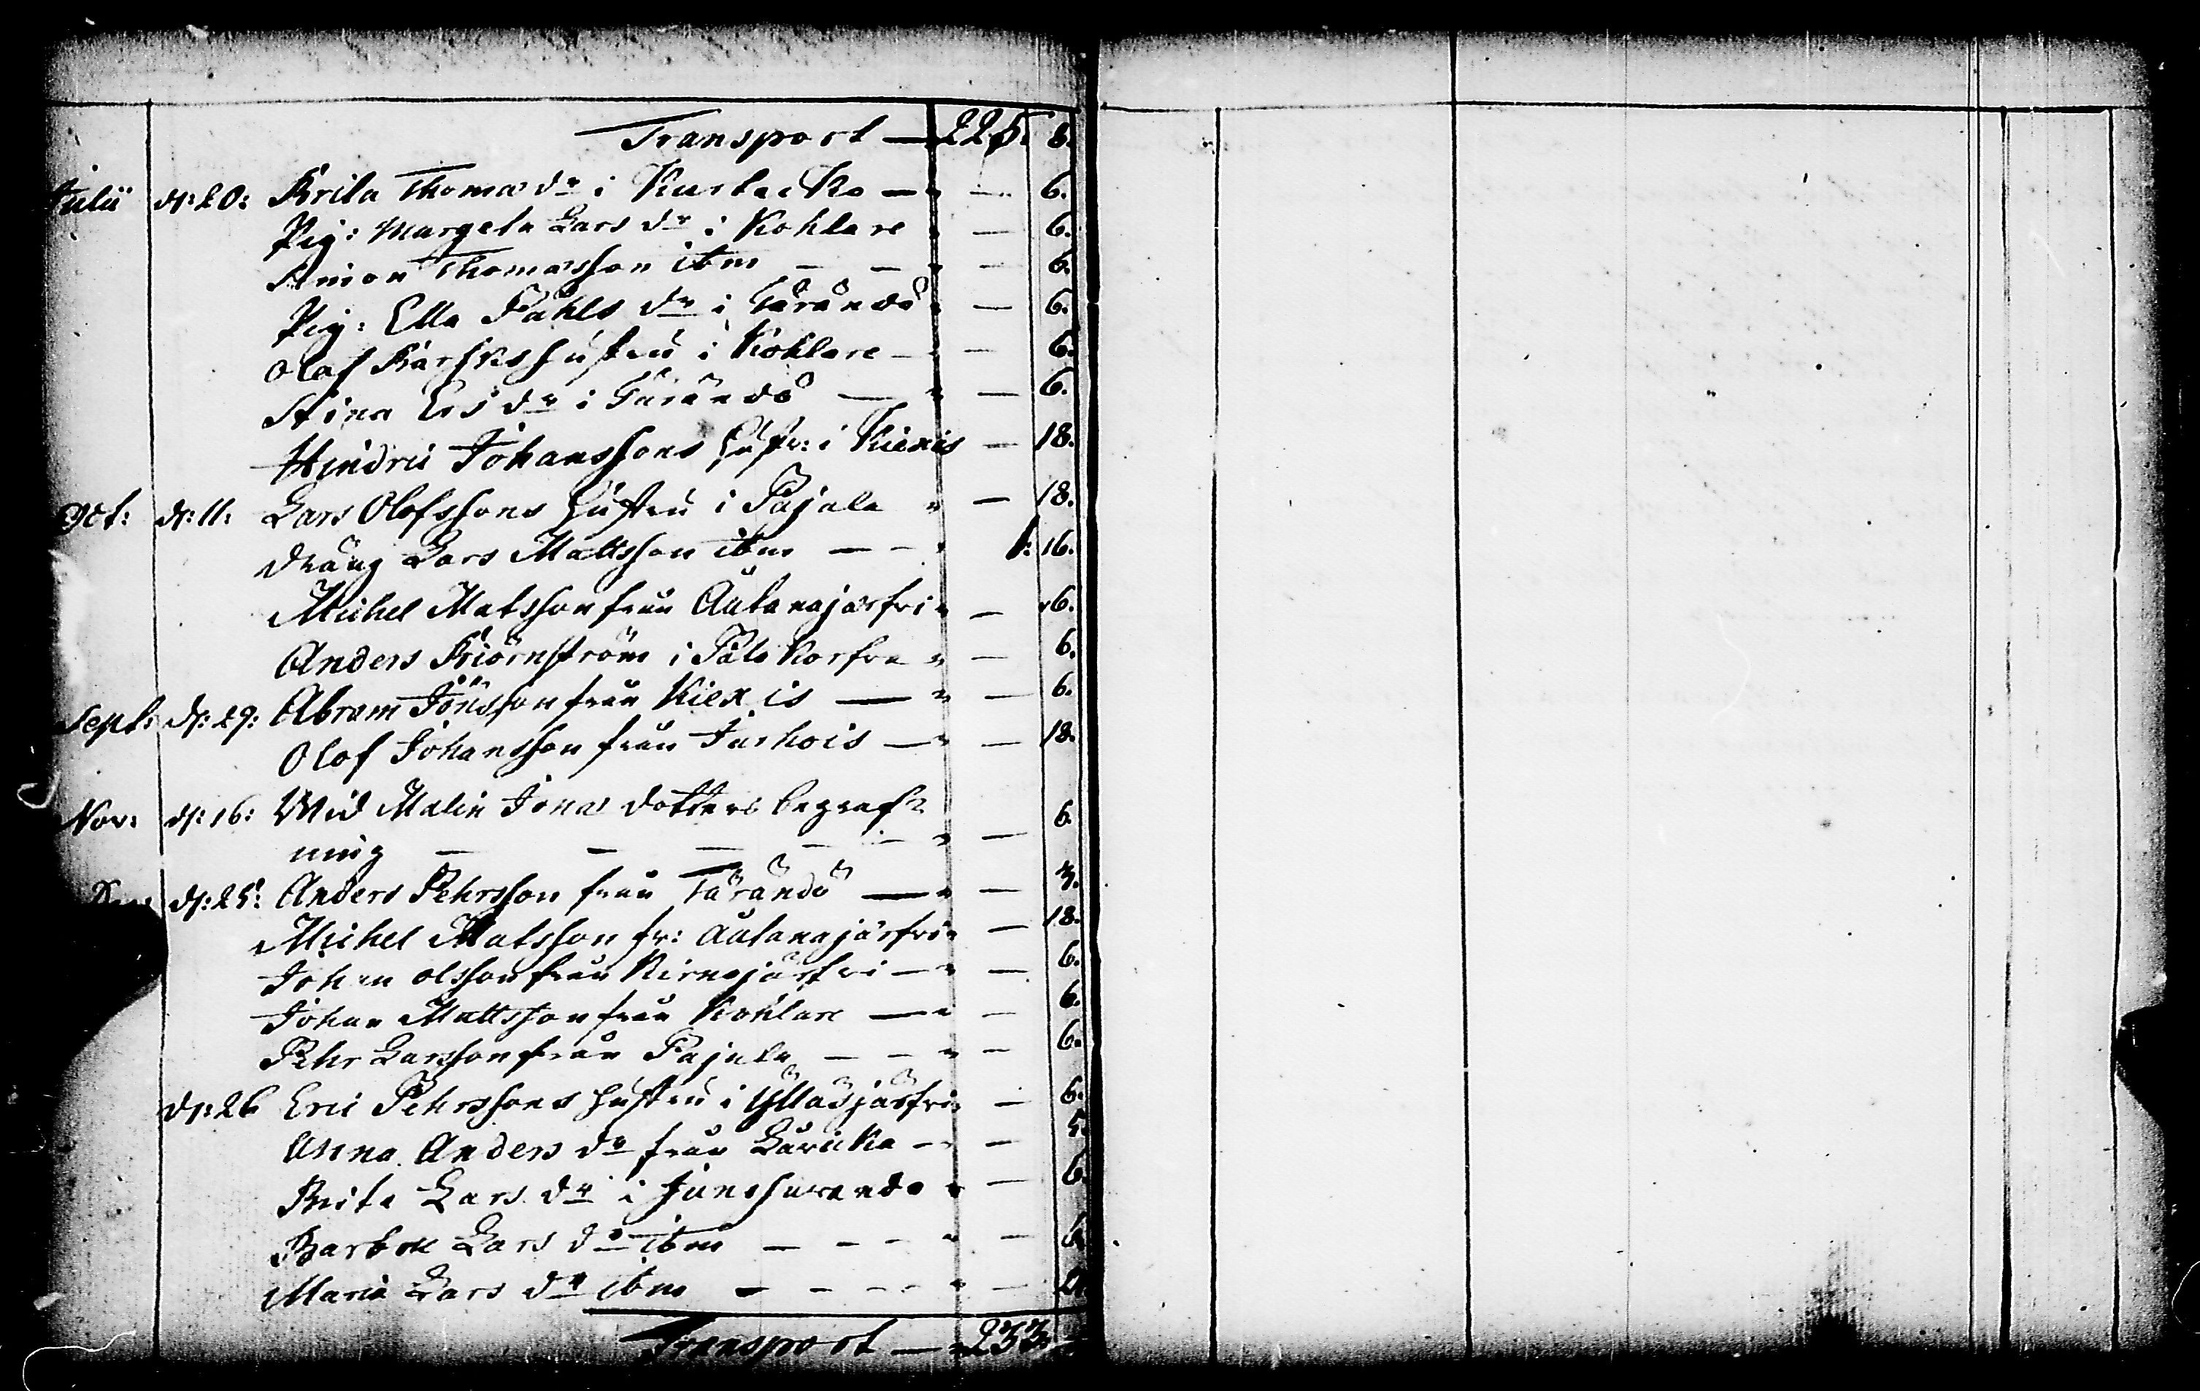 Transport — 225. 8.
Julii d: 20: Brita Thomas dr i — " — 6.
Pig: Margeta Lars dr i Kohlare " — 6.
Simon Thomasson ibm — — " — 6.
Pig: Ella Påhls dr i Tärändö " — 6.
Olof hustru i Kohlare — " — 6.
Stina Ers dr i Tärändö — " — 6.
Hindric Johanssons hustr: i Kiexis — 18.
Oct: d: 11: Lars Olofssons hustru i Pajala " — 18.
Dräng Lars Mattsson ibm — — " 1: 16.
Michel Matsson från Autanajärfvi " — 6.
Anders Biörnström i " — 6.
Sept: d: 29: Abram Jönsson från Kiexis — " — 6.
Olof Johansson från Juhois — " — 18.
Nov: d: 16: Wid Malin Jonas dotters begraf-
ning — — — — — " — 6.
d: 25: Anders Pehrsson från Tärändö — " — 3.
Michel Matsson fr: Autanajärfvi " — 18.
Johan Olsson från Kirnajärfvi — " — 6.
Johan Mattsson från Kohlare — " — 6.
Pehr Larsson från Pajala — — " — 6.
d: 26 Eric Pehrssons hustru i Ylläsjärfvi " — 6.
Anna Anders dr från — " — 5.
Brita Lars dr i Junosuando " — 6.
Barbro Lars dr ibm — — — " — 6.
Maria Lars dr ibm — — — — " —
Transport — 233.